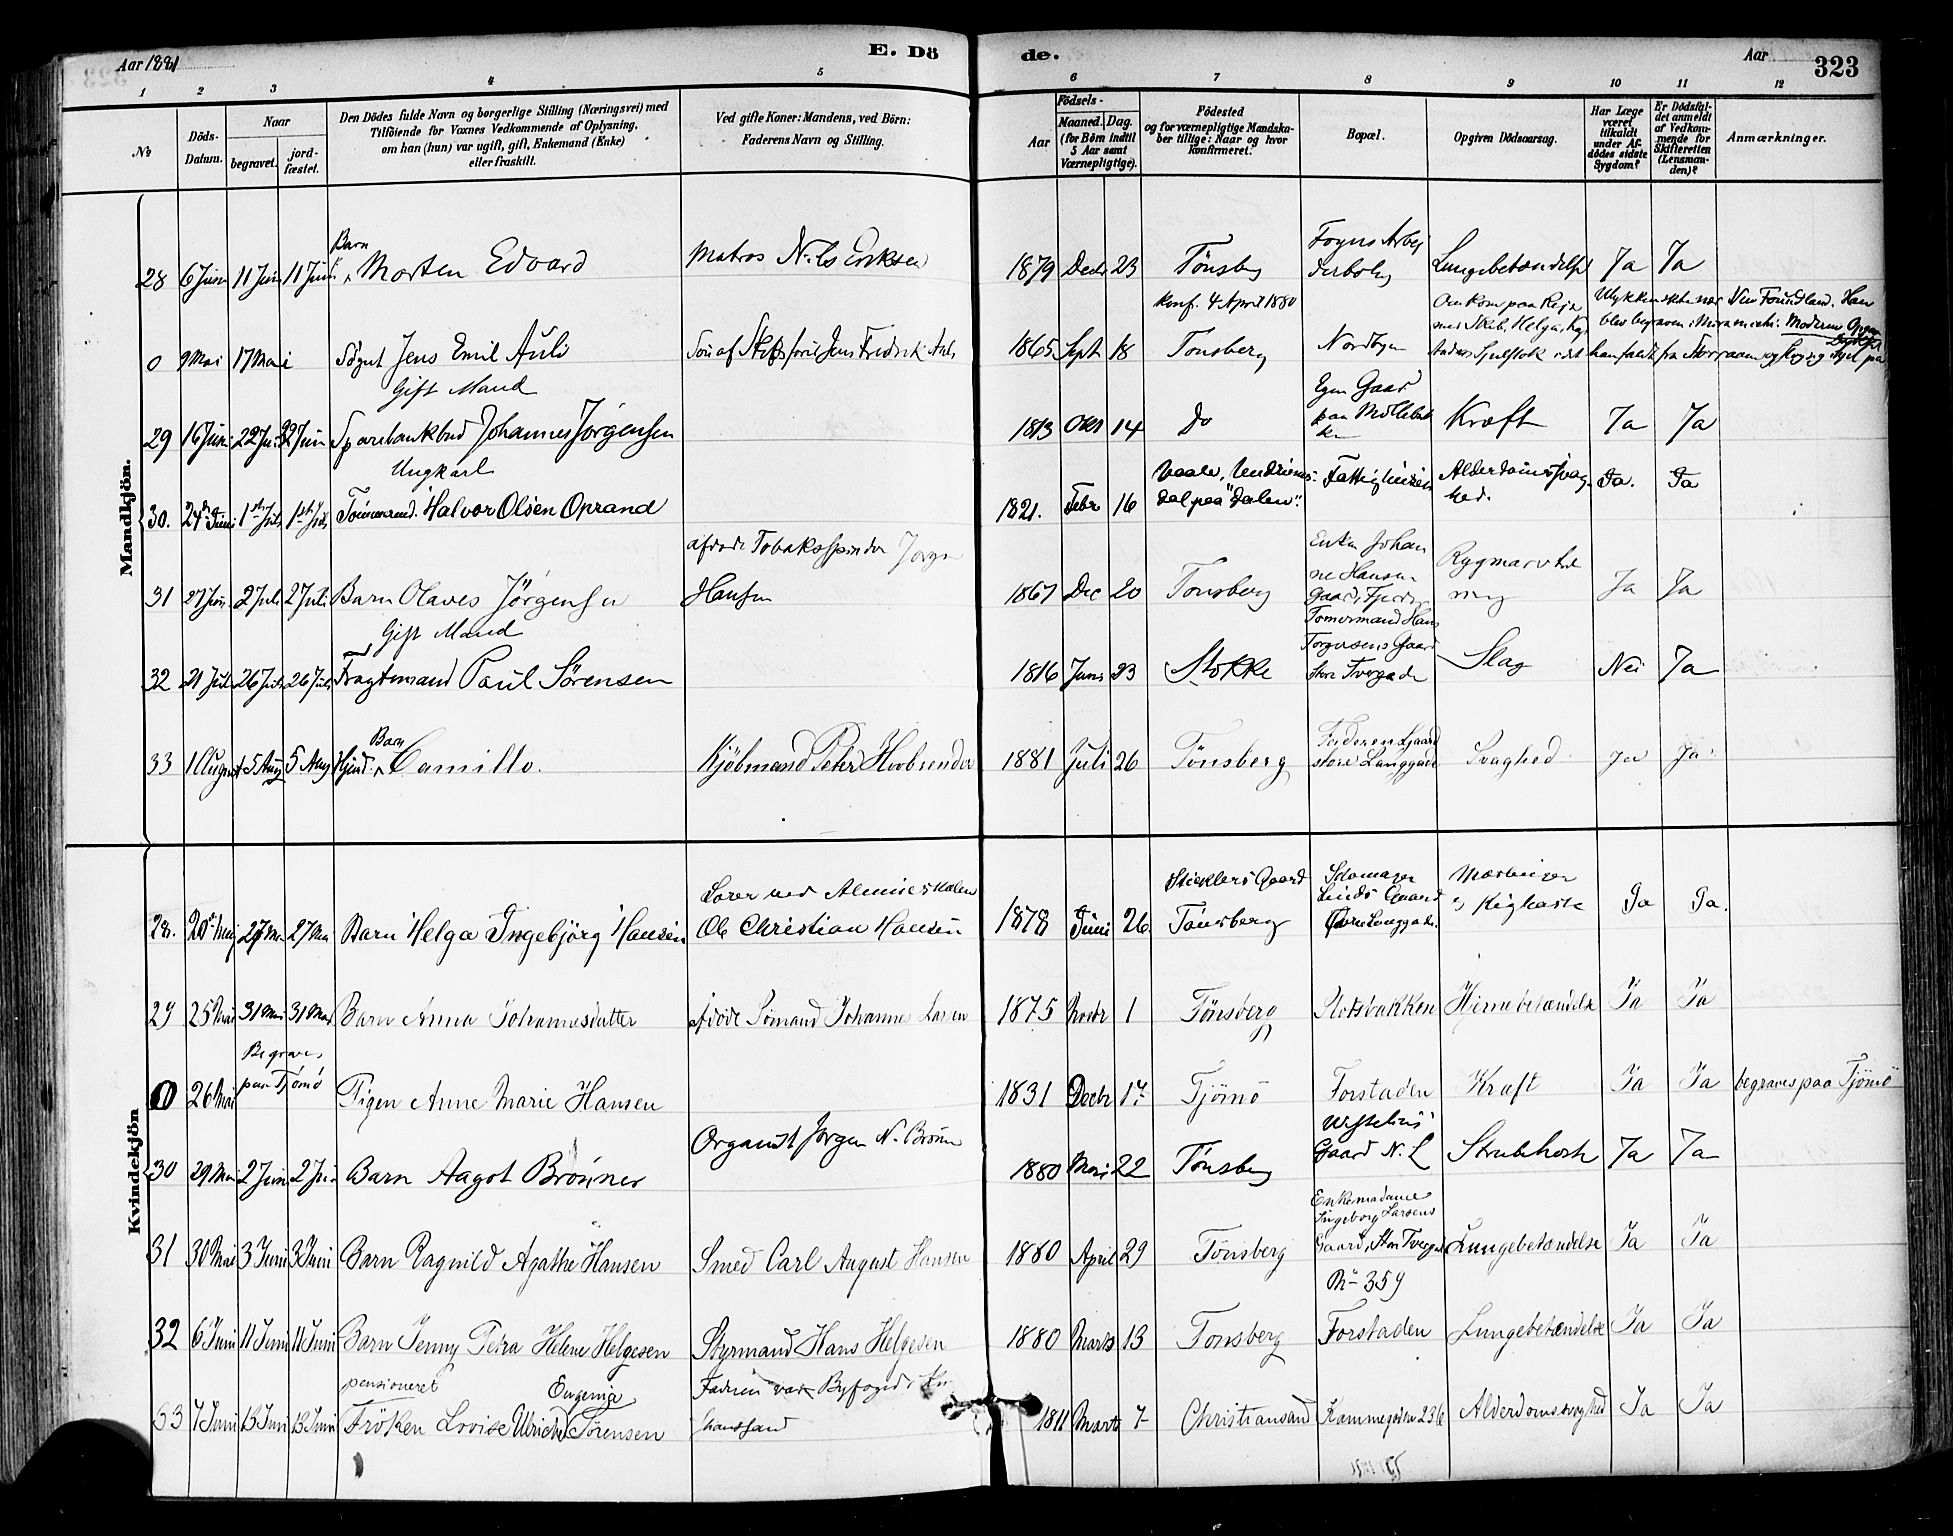 Aar 1881
E. Dö
de.
Aar
323
1 2 3 4 5 6 7 8 9 10 11 12
No
Döds-Datum.
Naar
begravet.
jord-fæstet.
Den Dödes fulde Navn og borgerlige Stilling (Næringsvei) med
Tilföiende for Voxnes Vedkommende af Oplysning,
om han (hun) var ugift, gift, Enkemand (Enke)
eller fraskilt.
Ved gifte Koner: Mandens, ved Börn:
Faderens Navn og Stilling.
Födsels-
Aar
Maaned. Dag.
(for Börn indtil
5 Aar samt
Værnepligtige).
Födested
og for værnepligtige Mandska-
ber tillige: Naar og hvor
konfirmeret.
Bopæl.
Opgiven Dödsaarsag.
Har Læge
været
tilkaldt
under Af-
dödes sidste
Sygdom?
Er Dödsfal-
det anmeldt
af Vedkom-
mende for
Skifteretten
(Lensman-
den)?
Anmærkninger.
Mandkjön.
28 6 Juni 11 Juni 11 Juni Barn Morten Edvard Matros Nils Eriksen 1879 Decbr 23 Tönsberg Lungebetændelse Ja Ja
Konf. 4 April 1880
0 9 Mai 17 Mai Søgut Jens Emil Auli Sön af Jens Fredrik Auli 1865 Sept 18 Tonsberg Nordbyen
Gift Mand
29 16 Juni 22 Juni 22 Juni Sparebankbud Johannes Jörgensen 1813 Okt 14 Do Egen Gaard paa Möllebakken Kræft Ja Ja
Ungkarl
30. 24de Juni 1ste Juli 1ste Juli Tömmermd. Halvor Olsen Oprand 1821. Febr 16 dal paa "Dalen". Fattighuset Alderdomssvaghed. Ja. Ja
31 27 Juni 2 Juli 2 Juli Barn Olaves Jörgensen afdöde Tobaksspinder Jörgen Hansen 1867 Dec 20 Tonsberg Enken Johanne Hansens Gaard, Rygmarvstæring Ja Ja
Gift Mand
32 21 Juli 26 Juli 26 Juli Fragtemand Paul Sørensen 1816 Juni 23 Stokke Tömermand Hans Torgersens Gaard Store Tvergade Slag Nei Ja
33 1 August 5 Aug 5 Aug Barn Camillo. Kjöbmand Peter 1881 Juli 26 Tönsberg Faderens Gaard store Langgade Svaghed Ja Ja
Kvindekjön
28. 20de Mai 27 Mai 27 Mai Barn Helga Ingebjörg Hansen Lærer ved Almueskolen Ole Christian Hansen 1878 Juni 26 Tönsberg Mæslinger og Kighoste Ja Ja.
29 25 Mai 31 Mai 31 Mai Barn Anna Johannesdatter afdöde Sömand Johannes Larsen 1875 Novbr 1 Tönsberg Slotsbakken Hjernebetændelse Ja Ja
0 26 Mai Begraves paa Tjömö Pigen Anne Marie Hansen 1831 Decbr 17 Tjömö Forstaden Kræft Ja Ja begraves paa Tjömö
30 29 Mai 2 Juni 2 Juni Barn Aagot Brönner Organist Jörgen N. Brönner 1880 Mai 22 Tönsberg Gaard N. L Strubehoste Ja Ja
31 30 Mai 3 Juni 3 Juni Barn Ragnild Agathe Hansen Smed Carl August Hansen 1880 April 29 Tönsberg Enkemadame Ingeborg Larsens Gaard, Store Tvergade No 359 Lungebetændelse Ja Ja
32 6 Juni 11 Juni 11 Juni Barn Jenny Petra Helene Helgesen Styrmand Hans Helgesen 1880 Marts 13 Tonsberg Forstaden Lungebetændelse Ja Ja
33 7 Juni 13 Juni 13 Juni pensioneret Fröken Lovise Ulricke Eugenia Sörensen Faderen var Byfoged i 1811 Marts 7 Christiansand Kammegaden 236 Alderdomssvaghed Ja Ja